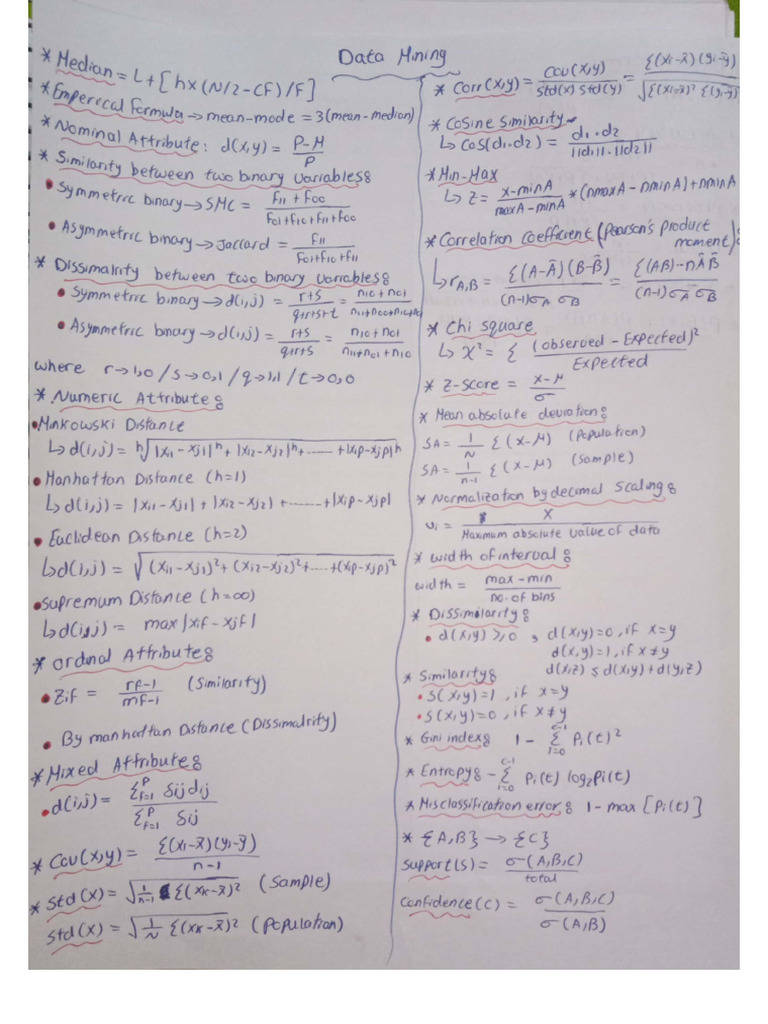 Data Mining
* Median = L+[h×(N/2-CF)/F]
* Emperical Formula → mean-mode = 3(mean-median)
* Nominal Attribute: d(x,y) = P-M/P
* Similarity between two binary variables:
• Symmetric binary → SMC = F11+F00/F01+F10+F11+F00
• Asymmetric binary → Jaccard = F11/F01+F10+F11
* Dissimalrity between two binary variables:
• Symmetric binary → d(i,j) = r+s/q+r+s+t = n10+n01/n11+n00+n10+n01
• Asymmetric binary → d(i,j) = r+s/q+r+s = n10+n01/n11+n01+n10
where r→1,0 / s→0,1 / q→1,1 / t→0,0
* Numeric Attribute:
• Minkowski Distance
↳ d(i,j) = h√|xi1-xj1|^h+|xi2-xj2|^h+......+|xip-xjp|^h
• Manhattan Distance (h=1)
↳ d(i,j) = |xi1-xj1|+|xi2-xj2|+......+|xip-xjp|
• Euclidean Distance (h=2)
↳ d(i,j) = √(xi1-xj1)²+(xi2-xj2)²+.....+(xip-xjp)²
• Supremum Distance (h=∞)
↳ d(i,j) = max|xif-xjf|
* ordinal Attribute:
• Zif = rf-1/mf-1 (Similarity)
• By manhattan Distance (Dissimalrity)
* Mixed Attribute:
• d(i,j) = Σ^P f=1 δij dij/Σ^P f=1 δij
* Cov(x,y) = Σ(xi-x̄)(yi-ȳ)/n-1
* Std(x) = √1/n-1 Σ(xk-x̄)² (Sample)
Std(x) = √1/N Σ(xk-x̄)² (Population)
* Corr(x,y) = Cov(x,y)/std(x) std(y) = Σ(xi-x̄)(yi-ȳ)/√Σ(xi-x̄)² Σ(yi-ȳ)²
* Cosine similarity
↳ Cos(d1.d2) = d1.d2/||d1||.||d2||
* Min-Max
↳ Z = x-minA/maxA-minA *(nmaxA-nminA)+nminA
* Correlation coefficient (Pearson's product
moment):
↳ rA,B = Σ(A-Ā)(B-B̄)/(n-1)σA σB = Σ(AB)-nĀB̄/(n-1)σA σB
* Chi square
↳ X² = Σ (observed-Expected)²/Expected
* Z-score = x-μ/σ
* Mean absolute deviation:
SA = 1/N Σ(x-μ) (Population)
SA = 1/n-1 Σ(x-μ) (Sample)
* Normalization by decimal scaling:
vi = x/Maximum absolute value of data
* width of interval:
width = max-min/no.of bins
* Dissimilarity:
• d(x,y) ≥ 0 , d(x,y)=0, if x=y
d(x,y)=1, if x≠y
d(x,z) ≤ d(x,y)+d(y,z)
* Similarity:
• S(x,y)=1, if x=y
• S(x,y)=0, if x≠y
* Gini index: 1 - Σ^c-1 i=0 Pi(t)²
* Entropy: - Σ^c-1 i=0 Pi(t) log2Pi(t)
* Misclassification error: 1-max [Pi(t)]
* {A,B} → {C}
Support(S) = σ(A,B,C)/total
Confidence(C) = σ(A,B,C)/σ(A,B)